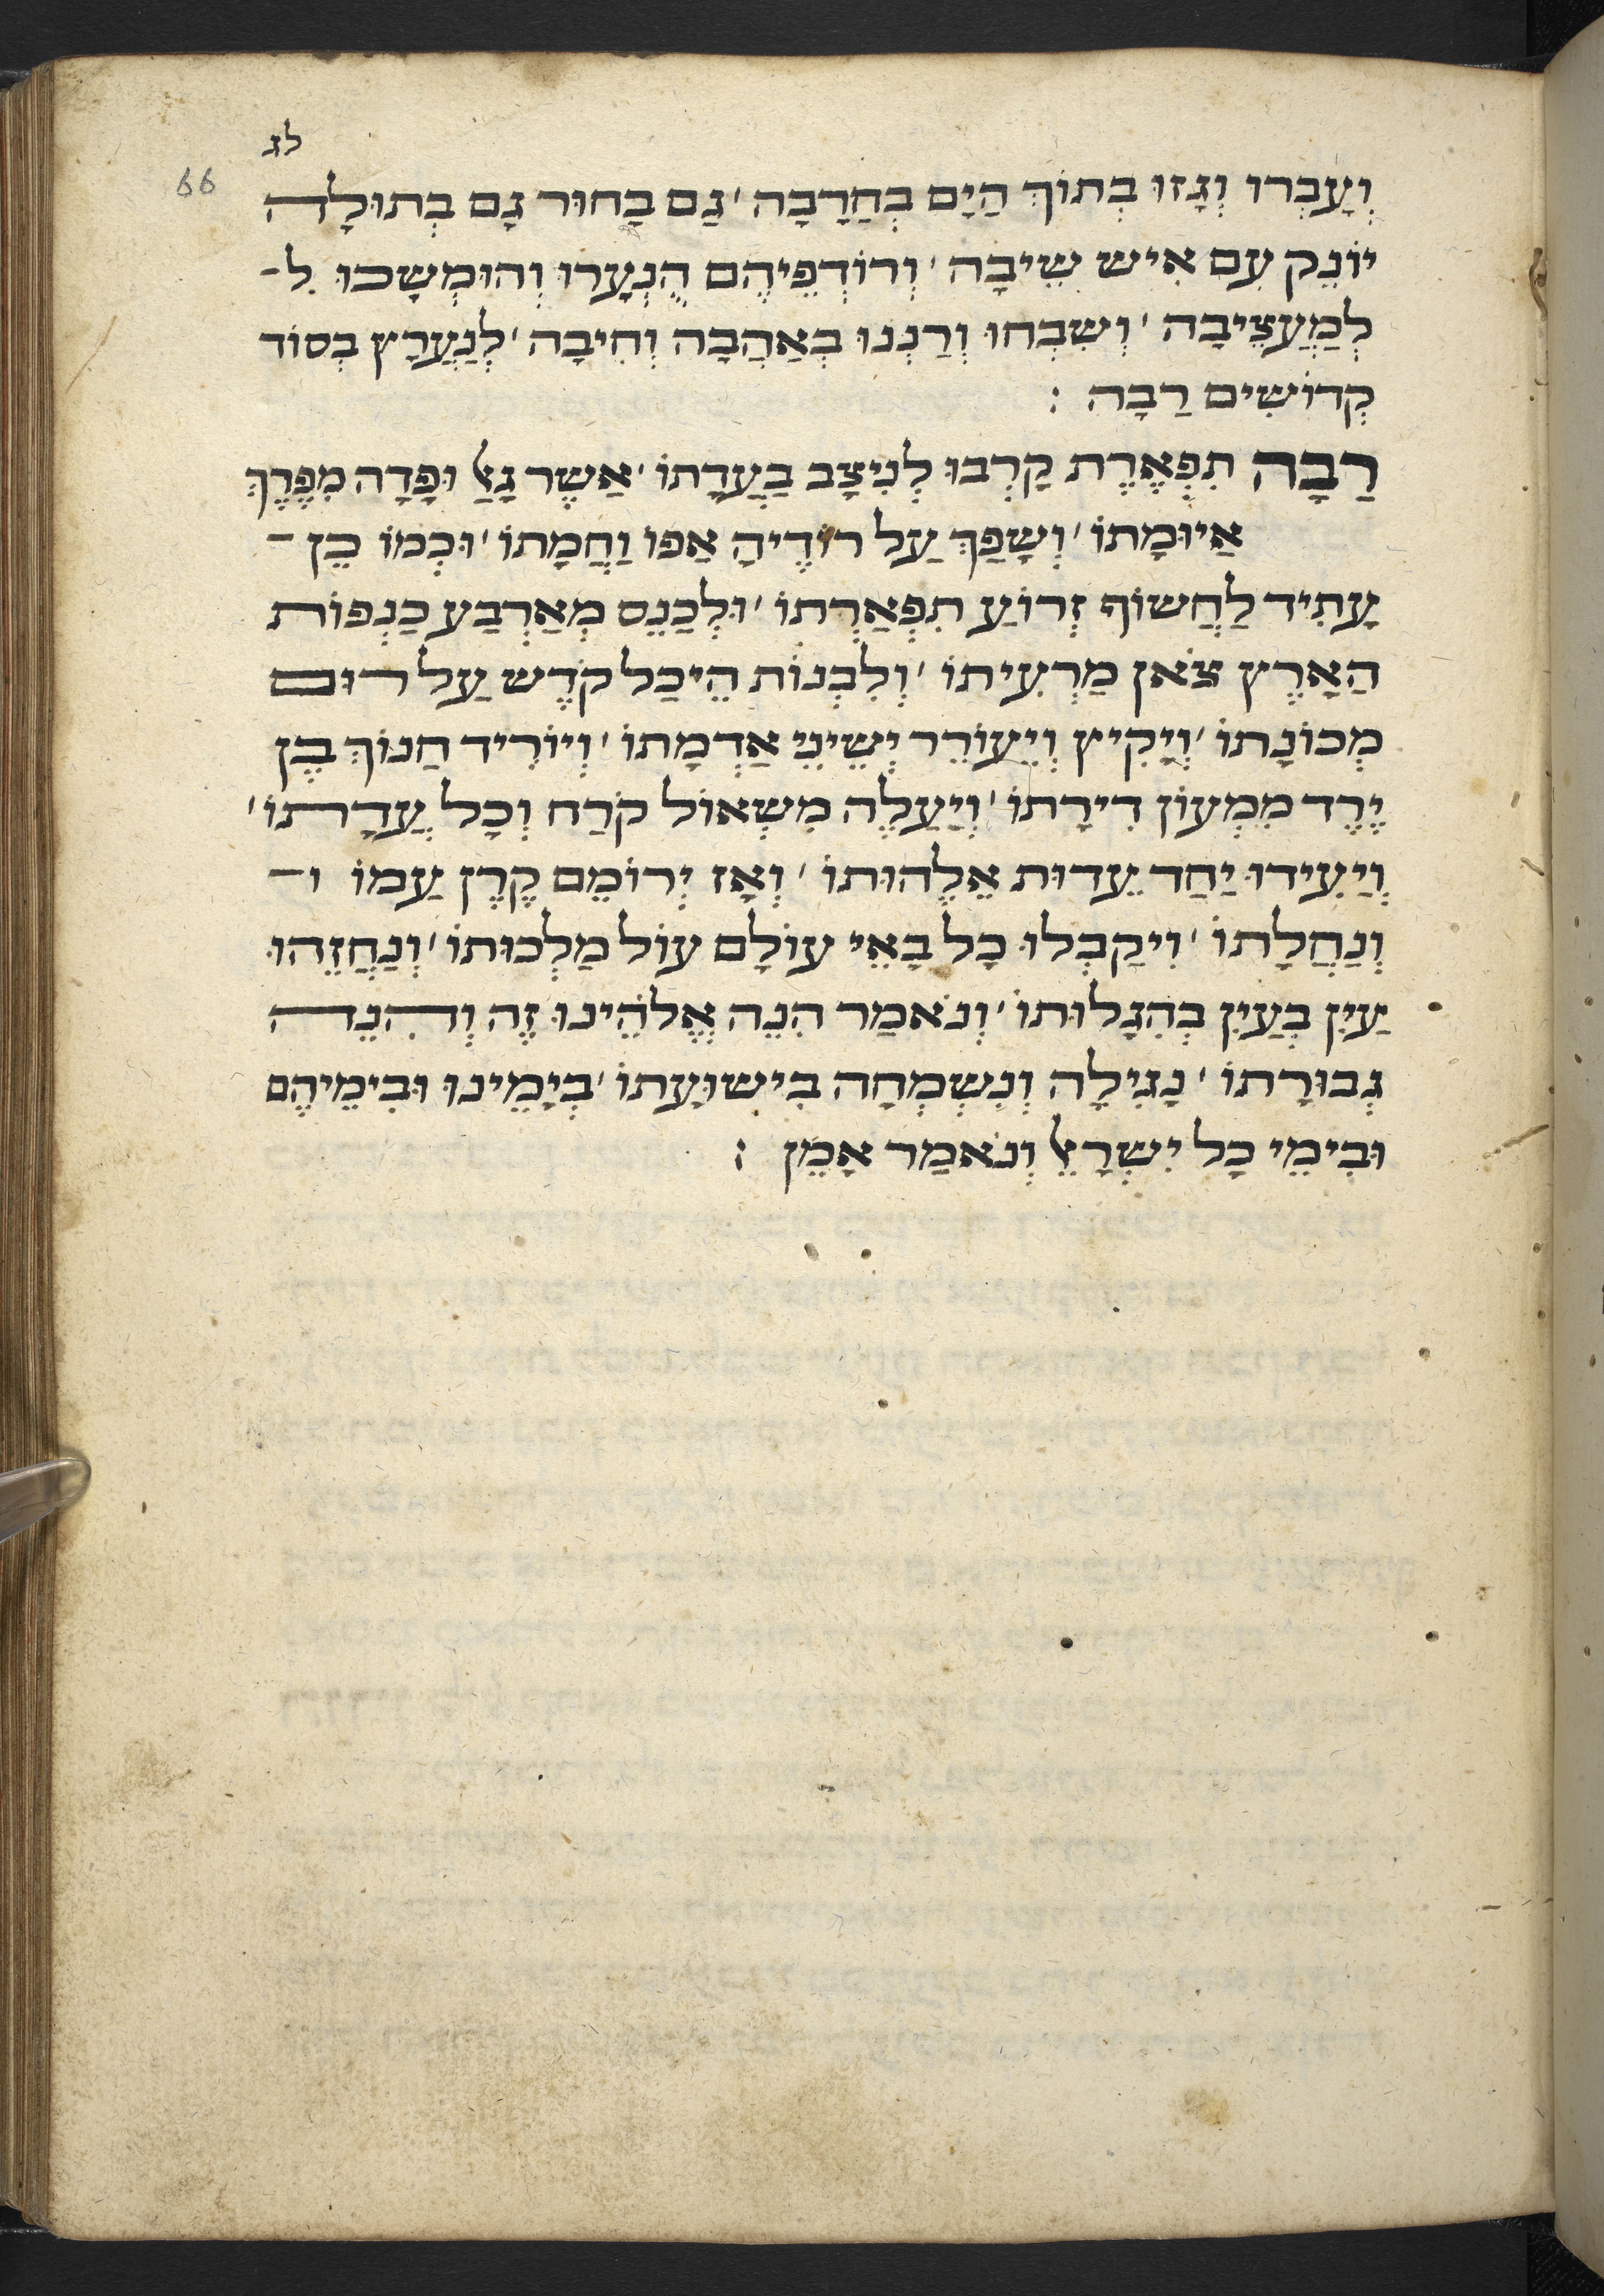 לג
66
וְעָבְרוּ וְגָזוּ בְתוֹךְ הַיָם בְחַרָבָה ׳ גַם בָחוּר גָם בְתוּלָה
יוֹנֵק עִם אִיש שֵיבָה ׳ וְרוֹדְפֵיהֶם הֻנְעָרוּ וְהוּמְשָכוּ לְ־
לְמַעֲצֵיבָה ׳ וְשִבְחוּ וְרַנְנוּ בְאַהֲבָה וְחִיבָה ׳ לְנַעֲרָץ בְסוֹד
קְדוֹשִים רַבָה :
רַבָה תִפְאֶרֶת קָרְבוּ לְנִיצָב בַעֲדָתוֹ ׳ אַשֶר גָאַל וּפָדָה מִפֶרֶךְ
אַיוּמָתוֹ ׳ וְשָפַךְ עַל רוֹדֶיהָ אַפוֹ וַחֲמָתוֹ ׳ וּכְמוֹ כֵן ־
עָתִיד לַחֲשוֹף זְרוֹעַ תִפְאַרְתוֹ ׳ וּלְכַנֵס מְאַרְבַע כַנְפוֹת
הַאָרֶץ צֹאן מַרְעִיתוֹ ׳ וְלִבְנוֹת הֵיכַל קֹדֶש עַל רוּם
מְכוֹנָתוֹ ׳ וְיָקִיץ וְיִעוֹרֵר יְשֵינֵי אַדְמָתוֹ ׳ וְיוֹרִיד חַנוֹךְ בֶן
יֶרֶד מִמְעוֹן דִירָתוֹ ׳ וְיַעַלֶה מִשְאוֹל קֹרַח וְכָל עֲדָתוֹ ׳
וְיַעִידוּ יַחַד עֵדוּת אֱלֶהוּתוֹ ׳ וְאָז יְרוֹמֵם קֶרֶן עַמוֹ וְ־
וְנַחֲלָתוֹ ׳ וִיקַבְלוּ כָל בָאֵי עוֹלָם עוֹל מַלְכוּתוֹ ׳ וְנַחֲזֵהוּ
עַיִן בְעַיִן בְהִגָלוּתוֹ ׳ וְנֹאמַר הִנֵה אֱלֹהֵינוּ זֶה וְהִנֵה
גְבוּרָתוֹ ׳ נָגִילָה וְנִשְמְחָה בִישוּעָתוֹ ׳ בְיָמֵינוּ וּבִימֵיהֶם
וּבִימֵי כָל יִשְרָאֵל וְנֹאמַר אָמֵן :